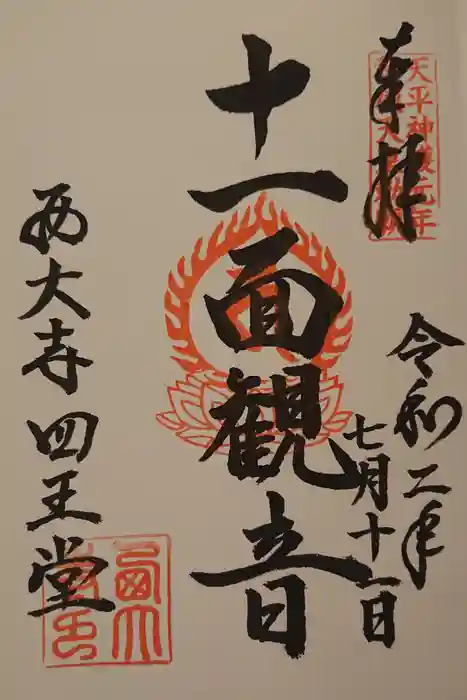 奉拝
天平神護元年
令和二年
七月十一日
十一面観音
西大寺四王堂